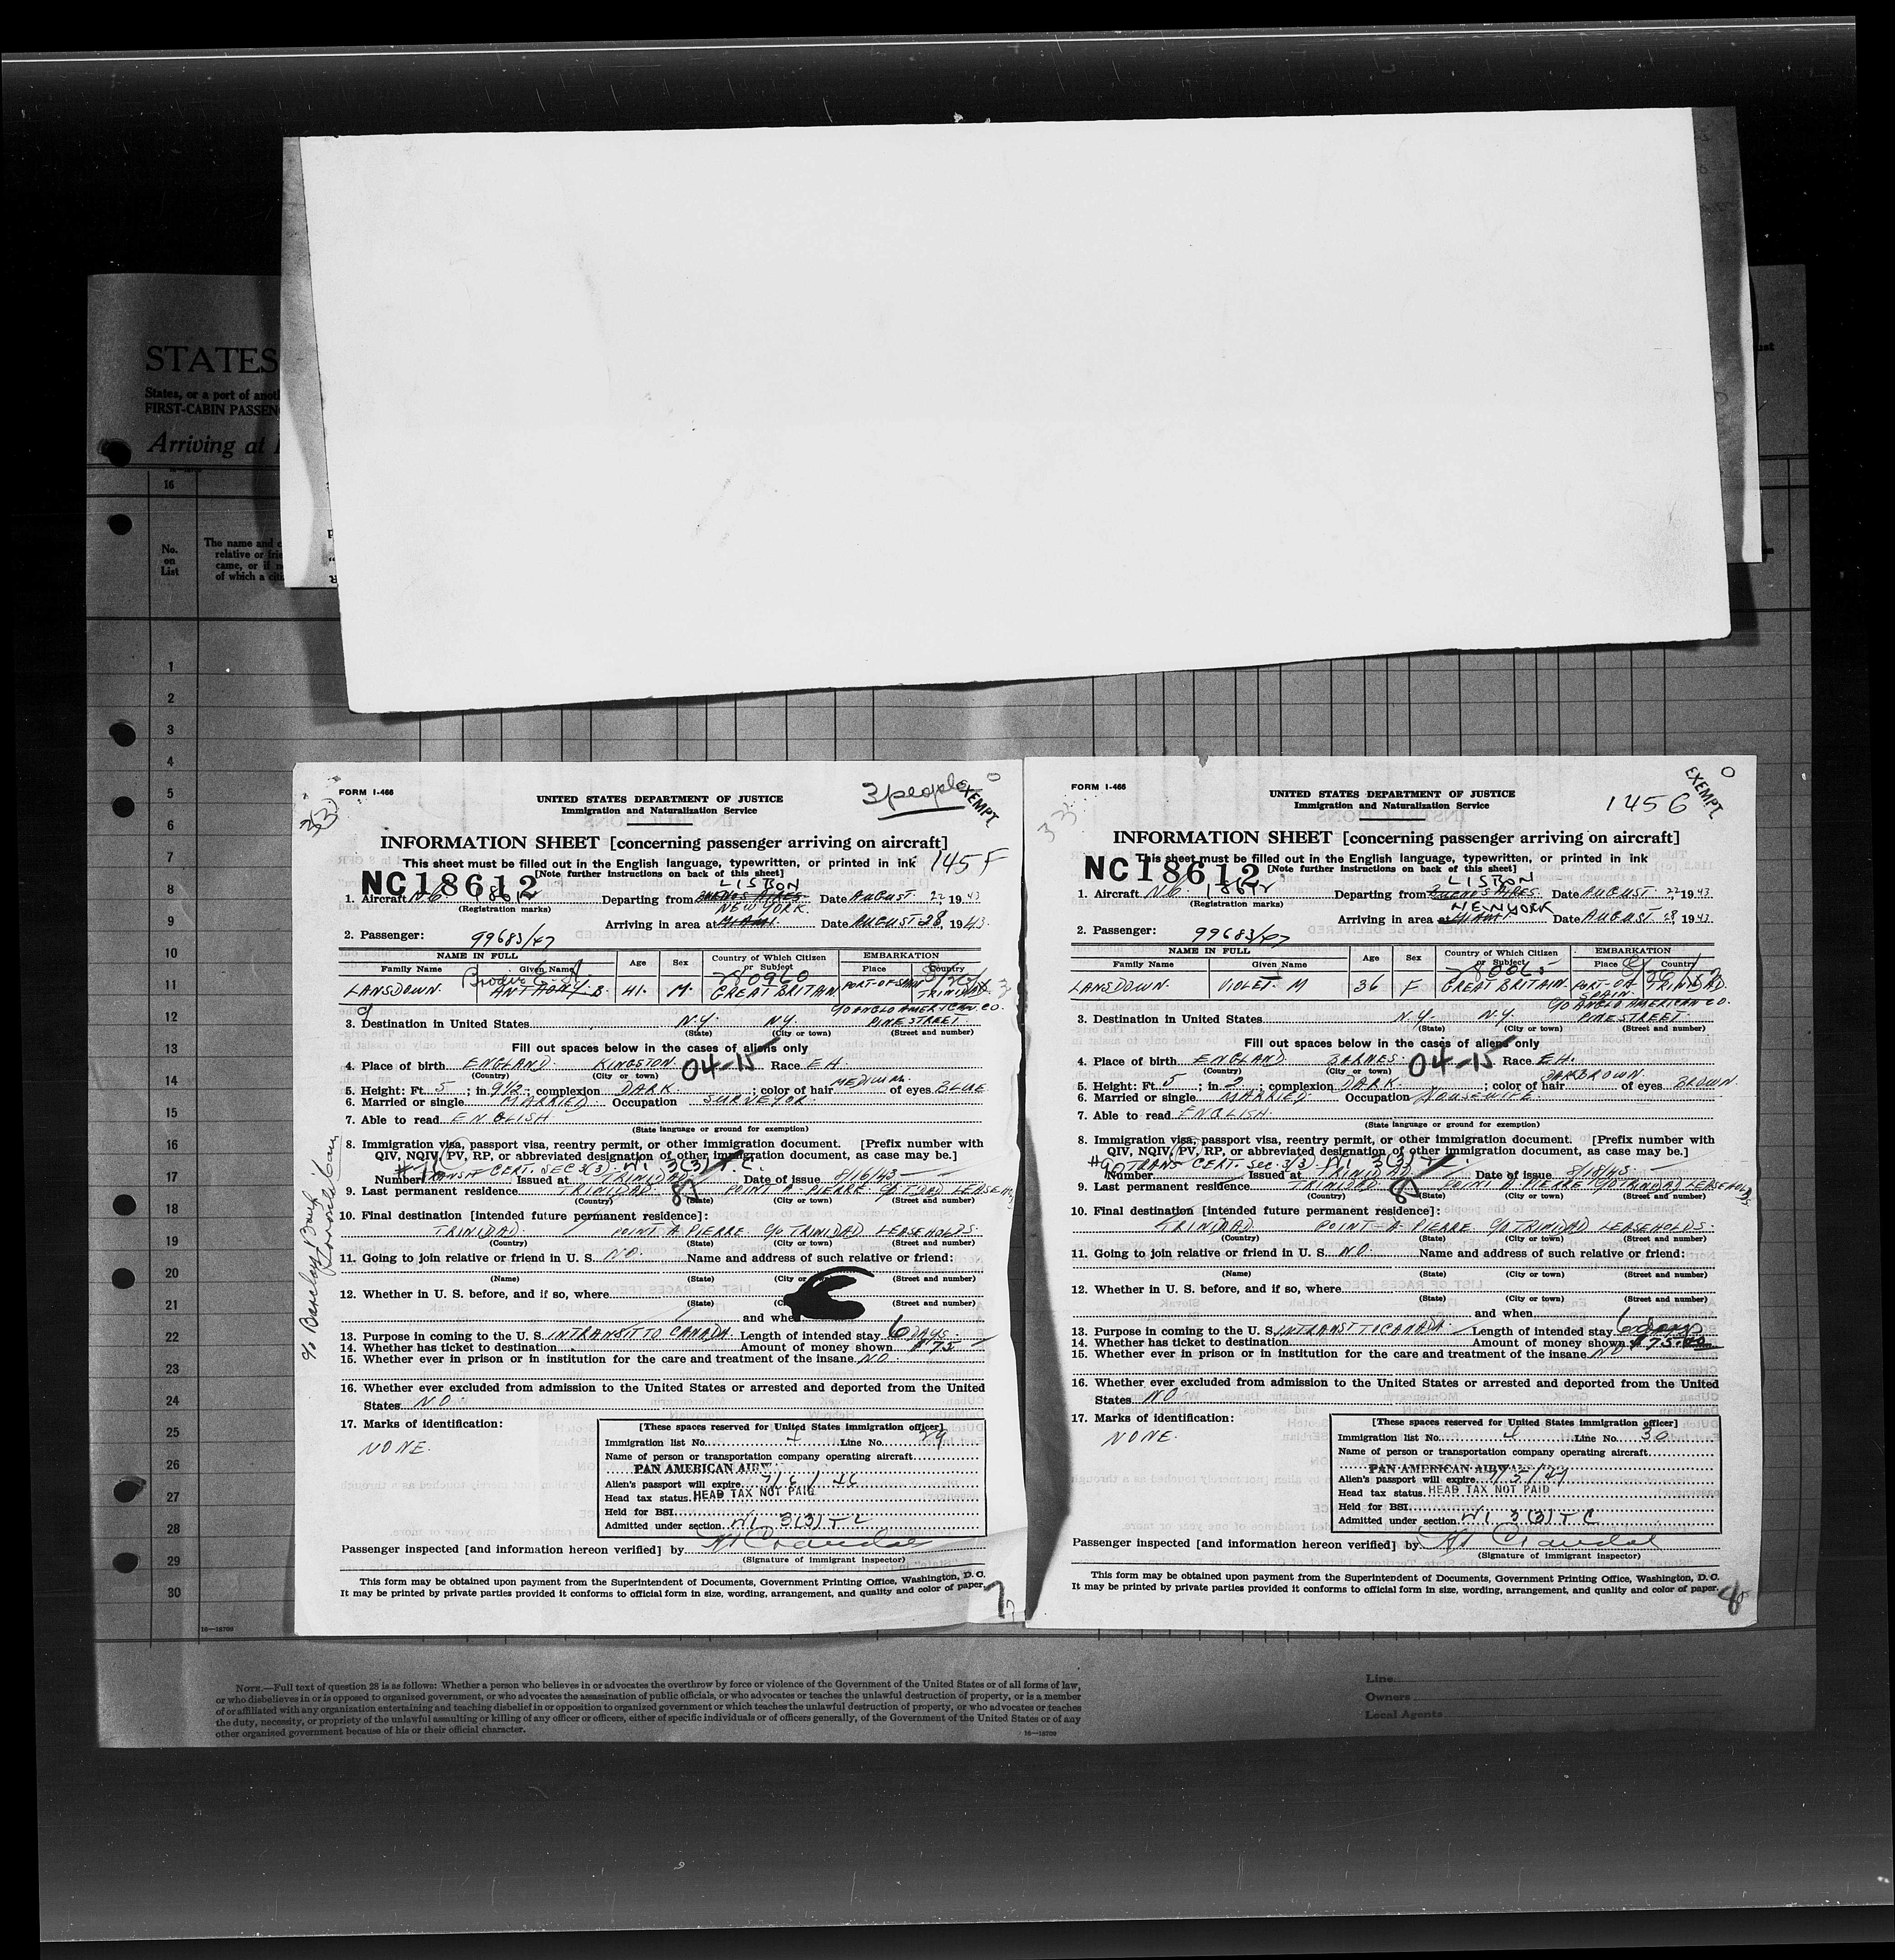 STATES
States, or a port of
FIRST-CABIN
Arriving at
16
No.
on
List
The name and
relative or
came, or if
of which a
1
2
3
4
5
6
7
8
9
10
11
12
13
14
15
16
17
18
19
20
21
22
23
24
25
26
27
28
29
30
16—18709
FORM I-466
3 people
EXEMPT
UNITED STATES DEPARTMENT OF JUSTICE
Immigration and Naturalization Service
INFORMATION SHEET [concerning passenger arriving on aircraft]
This sheet must be filled out in the English language, typewritten, or printed in ink
145 F
NC18612
[Note further instructions on back of this sheet]
LISBON
1. Aircraft NC 18612 Departing from BUENOS AIRES Date AUGUST 22 1943
(Registration marks)
NEW YORK
Arriving in area at MIAMI Date AUGUST 28, 1943
2. Passenger: 99683/47
NAME IN FULL Age Sex Country of Which Citizen or Subject EMBARKATION
Family Name Given Name Place Country
LANSDOWN ANTHONY B. 41 M. GREAT BRITAIN PORT-OF-SPAIN TRINIDAD
C/O ANGLO AMERICAN CO.
3. Destination in United States N.Y. N.Y. PINE STREET
(State) (City or town) (Street and number)
Fill out spaces below in the cases of aliens only
4. Place of birth ENGLAND KINGSTON 04-15 Race EH.
(Country) (City or town)
5. Height: Ft. 5; in 9 1/2; complexion DARK; color of hair MEDIUM of eyes BLUE
6. Married or single MARRIED Occupation SURVEYOR
7. Able to read ENGLISH
(State language or ground for exemption)
8. Immigration visa, passport visa, reentry permit, or other immigration document. [Prefix number with
QIV, NQIV, PV, RP, or abbreviated designation of other immigration document, as case may be.]
TRANSIT CERT. SEC 3(3)
Number Issued at TRINIDAD Date of issue 8/16/43
9. Last permanent residence TRINIDAD POINT A PIERRE
(Country) (State) (City or town) (Street and number)
10. Final destination [intended future permanent residence]:
TRINIDAD POINT A PIERRE C/O TRINIDAD LEASEHOLDS
(Country) (State) (City or town) (Street and number)
11. Going to join relative or friend in U. S. NO. Name and address of such relative or friend:
(Name) (State) (City or (Street and number)
12. Whether in U. S. before, and if so, where
(State) (Street and number)
and when
13. Purpose in coming to the U. S. IN TRANSIT TO CANADA Length of intended stay 6 DAYS
14. Whether has ticket to destination Amount of money shown $75
15. Whether ever in prison or in institution for the care and treatment of the insane NO
16. Whether ever excluded from admission to the United States or arrested and deported from the United
States NO
17. Marks of identification:
NONE.
[These spaces reserved for United States immigration officer]
Immigration list No. 4 Line No. 29
Name of person or transportation company operating aircraft
PAN AMERICAN AIRWAYS
Alien's passport will expire
Head tax status HEAD TAX NOT PAID
Held for BSI
Admitted under section
Passenger inspected [and information hereon verified] by
(Signature of immigrant inspector)
This form may be obtained upon payment from the Superintendent of Documents, Government Printing Office, Washington, D. C.
It may be printed by private parties provided it conforms to official form in size, wording, arrangement, and quality and color of paper.
c/o Barclay Bank
FORM I-466
EXEMPT
UNITED STATES DEPARTMENT OF JUSTICE
Immigration and Naturalization Service
145 G
INFORMATION SHEET [concerning passenger arriving on aircraft]
This sheet must be filled out in the English language, typewritten, or printed in ink
NC18612
[Note further instructions on back of this sheet]
LISBON
1. Aircraft NC 18612 Departing from BUENOS AIRES Date AUGUST 22, 1943
(Registration marks)
NEW YORK
Arriving in area at MIAMI Date AUGUST 28, 1943
2. Passenger: 99683/47
NAME IN FULL Age Sex Country of Which Citizen or Subject EMBARKATION
Family Name Given Name Place Country
LANSDOWN. VIOLET M 36 F GREAT BRITAIN PORT-OF-SPAIN TRINIDAD
C/O ANGLO AMERICAN CO.
3. Destination in United States N.Y. N.Y. PINE STREET
(State) (City or town) (Street and number)
Fill out spaces below in the cases of aliens only
4. Place of birth ENGLAND BARNES 04-15 Race EH.
(Country) (City or town)
5. Height: Ft. 5; in 2; complexion DARK; color of hair DARK BROWN of eyes BROWN
6. Married or single MARRIED Occupation HOUSEWIFE
7. Able to read ENGLISH
(State language or ground for exemption)
8. Immigration visa, passport visa, reentry permit, or other immigration document. [Prefix number with
QIV, NQIV, PV, RP, or abbreviated designation of other immigration document, as case may be.]
TRANS CERT. SEC. 3(3)
Number Issued at TRINIDAD Date of issue 8/18/43
9. Last permanent residence TRINIDAD POINT A PIERRE C/O TRINIDAD LEASEHOLDS
(Country) (State) (City or town) (Street and number)
10. Final destination [intended future permanent residence]:
TRINIDAD POINT-A-PIERRE C/O TRINIDAD LEASEHOLDS
(Country) (State) (City or town) (Street and number)
11. Going to join relative or friend in U. S. NO. Name and address of such relative or friend:
(Name) (State) (City or town) (Street and number)
12. Whether in U. S. before, and if so, where
(State) (City or town) (Street and number)
and when
13. Purpose in coming to the U. S. INTRANSIT TO CANADA Length of intended stay 6 days
14. Whether has ticket to destination Amount of money shown $75.00
15. Whether ever in prison or in institution for the care and treatment of the insane NO
16. Whether ever excluded from admission to the United States or arrested and deported from the United
States NO
17. Marks of identification:
NONE.
[These spaces reserved for United States immigration officer]
Immigration list No. 4 Line No. 30
Name of person or transportation company operating aircraft
PAN AMERICAN AIRWAYS
Alien's passport will expire
Head tax status HEAD TAX NOT PAID
Held for BSI
Admitted under section
Passenger inspected [and information hereon verified] by
(Signature of immigrant inspector)
This form may be obtained upon payment from the Superintendent of Documents, Government Printing Office, Washington, D. C.
It may be printed by private parties provided it conforms to official form in size, wording, arrangement, and quality and color of paper.
8
NOTE.—Full text of question 28 is as follows: Whether a person who believes in or advocates the overthrow by force or violence of the Government of the United States or of all forms of law,
or who disbelieves in or is opposed to organized government, or who advocates the assassination of public officials, or who advocates or teaches the unlawful destruction of property, or is a member
of or affiliated with any organization entertaining and teaching disbelief in or opposition to organized government or which teaches the unlawful destruction of property, or who advocates or teaches
the duty, necessity, or propriety of the unlawful assaulting or killing of any officer or officers, either of specific individuals or of officers generally, of the Government of the United States or of any
other organized government because of his or their official character.
16—18709
Line
Owners
Local Agents